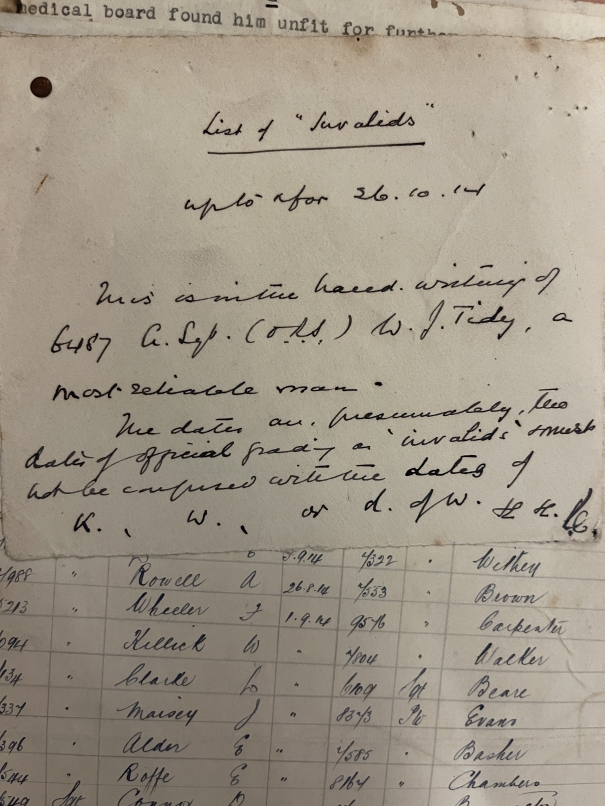 medical board found him unfit for further
List of "Invalids"
up to & for 26.10.14
This is in the hand-writing of
6487 A. Sgt. (O.R.S.) W. J. Tidy, a
most reliable man.
The dates are, presumably, the
dates of official grading as 'invalids' & must
not be confused with the dates of
K., W., or d. of W. H.
3.9.14 7/322 " Withey
/988 " Rowell A 26.8.14 7353 " Brown
213 " Wheeler F 1.9.14 9576 " Carpenter
094 " Killick W " 7804 " Walker
/834 " Clarke L " 6109 Sgt Beare
337 " Maisey J " 8373 Pte Evans
396 " Alder E " 7585 " Basher
544 " Roffe E " 8164 " Chambers
549 Sgt Connor